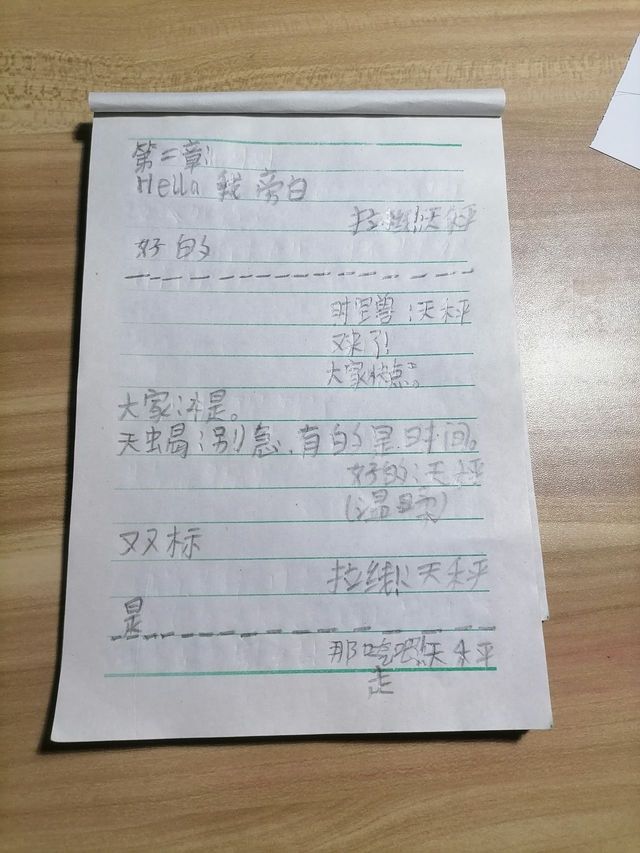 第二章:
Hello 我旁白
拉线!:天秤
好的
时空兽:天秤
又来了!
大家快点。
大家:是。
天蝎:别急,有的是时间。
好的:天秤
(温柔)
双标
拉线!:天秤
是
那吃吧!:天秤
走